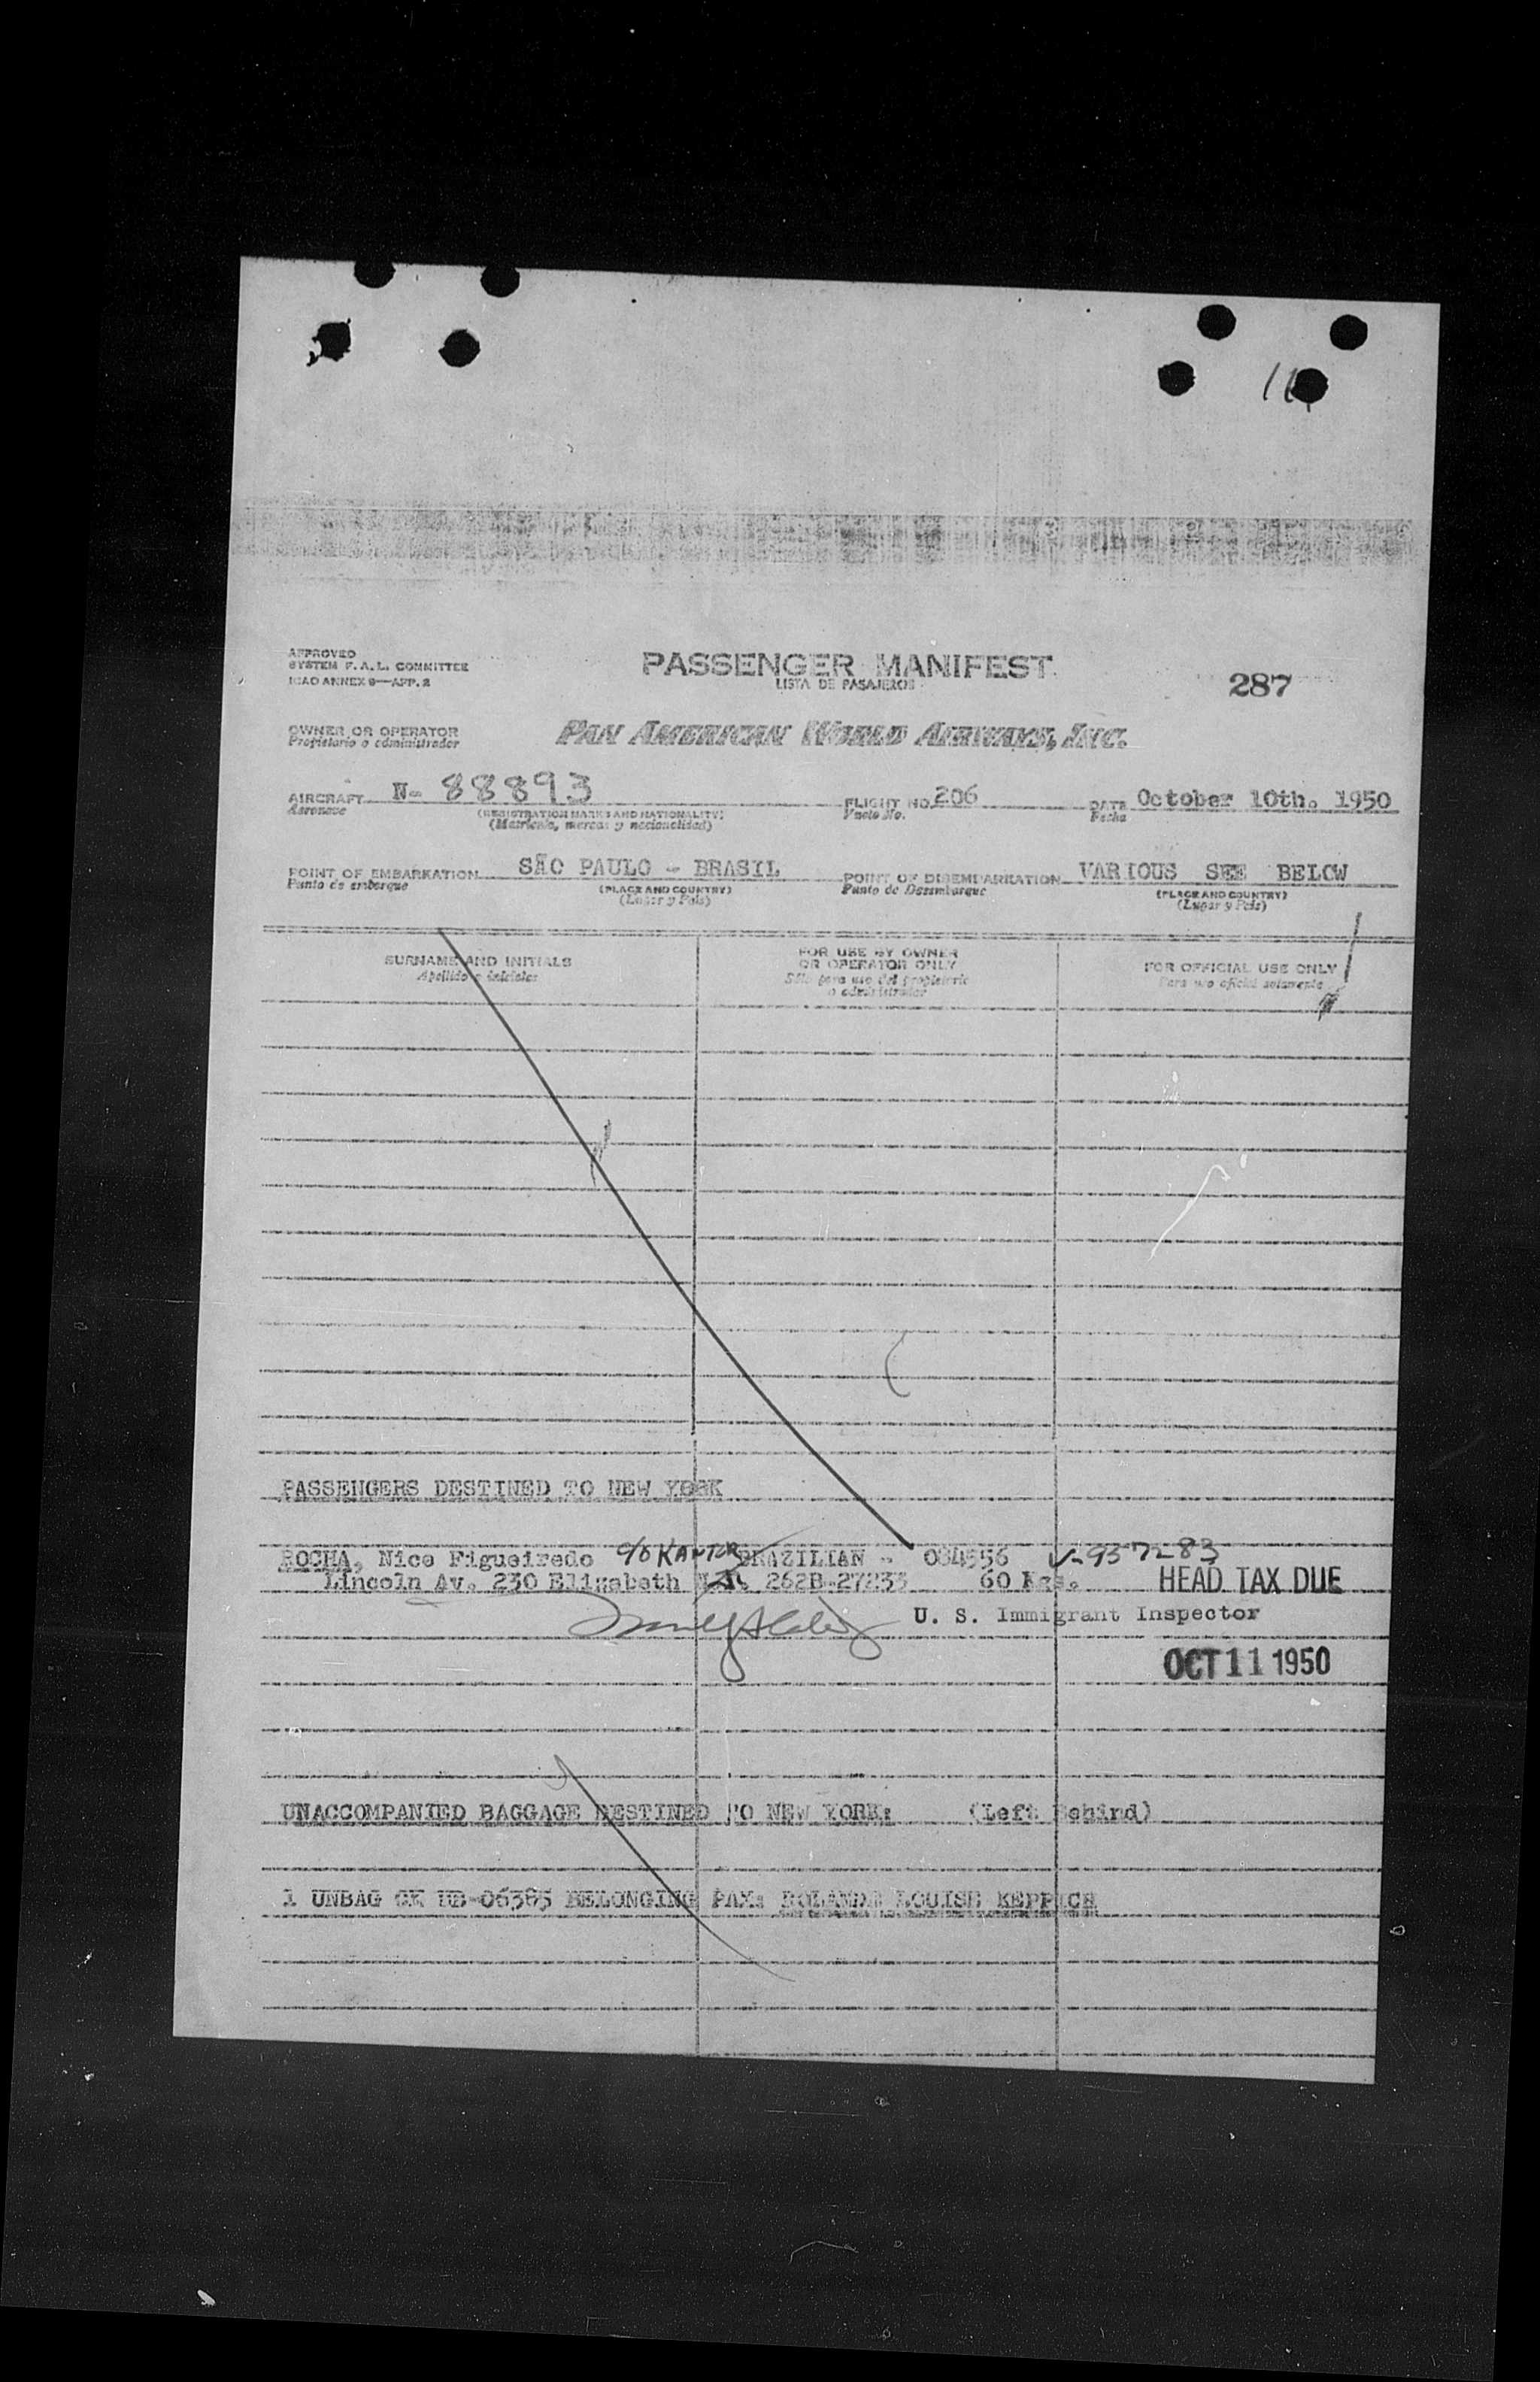 APPROVED
SYSTEM F. A. L. COMMITTEE
ICAO ANNEX 9—APP. 2
PASSENGER MANIFEST
LISTA DE PASAJEROS
287
OWNER OR OPERATOR
Propietario o administrador
PAN AMERICAN WORLD AIRWAYS, INC.
AIRCRAFT N- 88893 FLIGHT NO. 206 DATE October 10th. 1950
Aeronave (REGISTRATION MARKS AND NATIONALITY) Vuelo No. Fecha
(Matrícula, marcas y nacionalidad)
POINT OF EMBARKATION SÃO PAULO - BRASIL POINT OF DISEMBARKATION VARIOUS SEE BELOW
Punto de embarque (PLACE AND COUNTRY) Punto de Desembarque (PLACE AND COUNTRY)
(Lugar y País) (Lugar y País)
SURNAME AND INITIALS FOR USE BY OWNER OR OPERATOR ONLY FOR OFFICIAL USE ONLY
Apellido e iniciales Sólo para uso del propietario o administrador Para uso oficial solamente
PASSENGERS DESTINED TO NEW YORK
ROCHA, Nice Figueiredo c/o KANTOR BRAZILIAN - 084556 V-937283
Lincoln Av. 230 Elizabeth 262B-27233 60 Kgs. HEAD TAX DUE
U. S. Immigrant Inspector
OCT 11 1950
UNACCOMPANIED BAGGAGE DESTINED TO NEW YORK: (Left Behind)
1 UNBAG CK UB-06385 BELONGING PAX: LOUISE KEPPICH